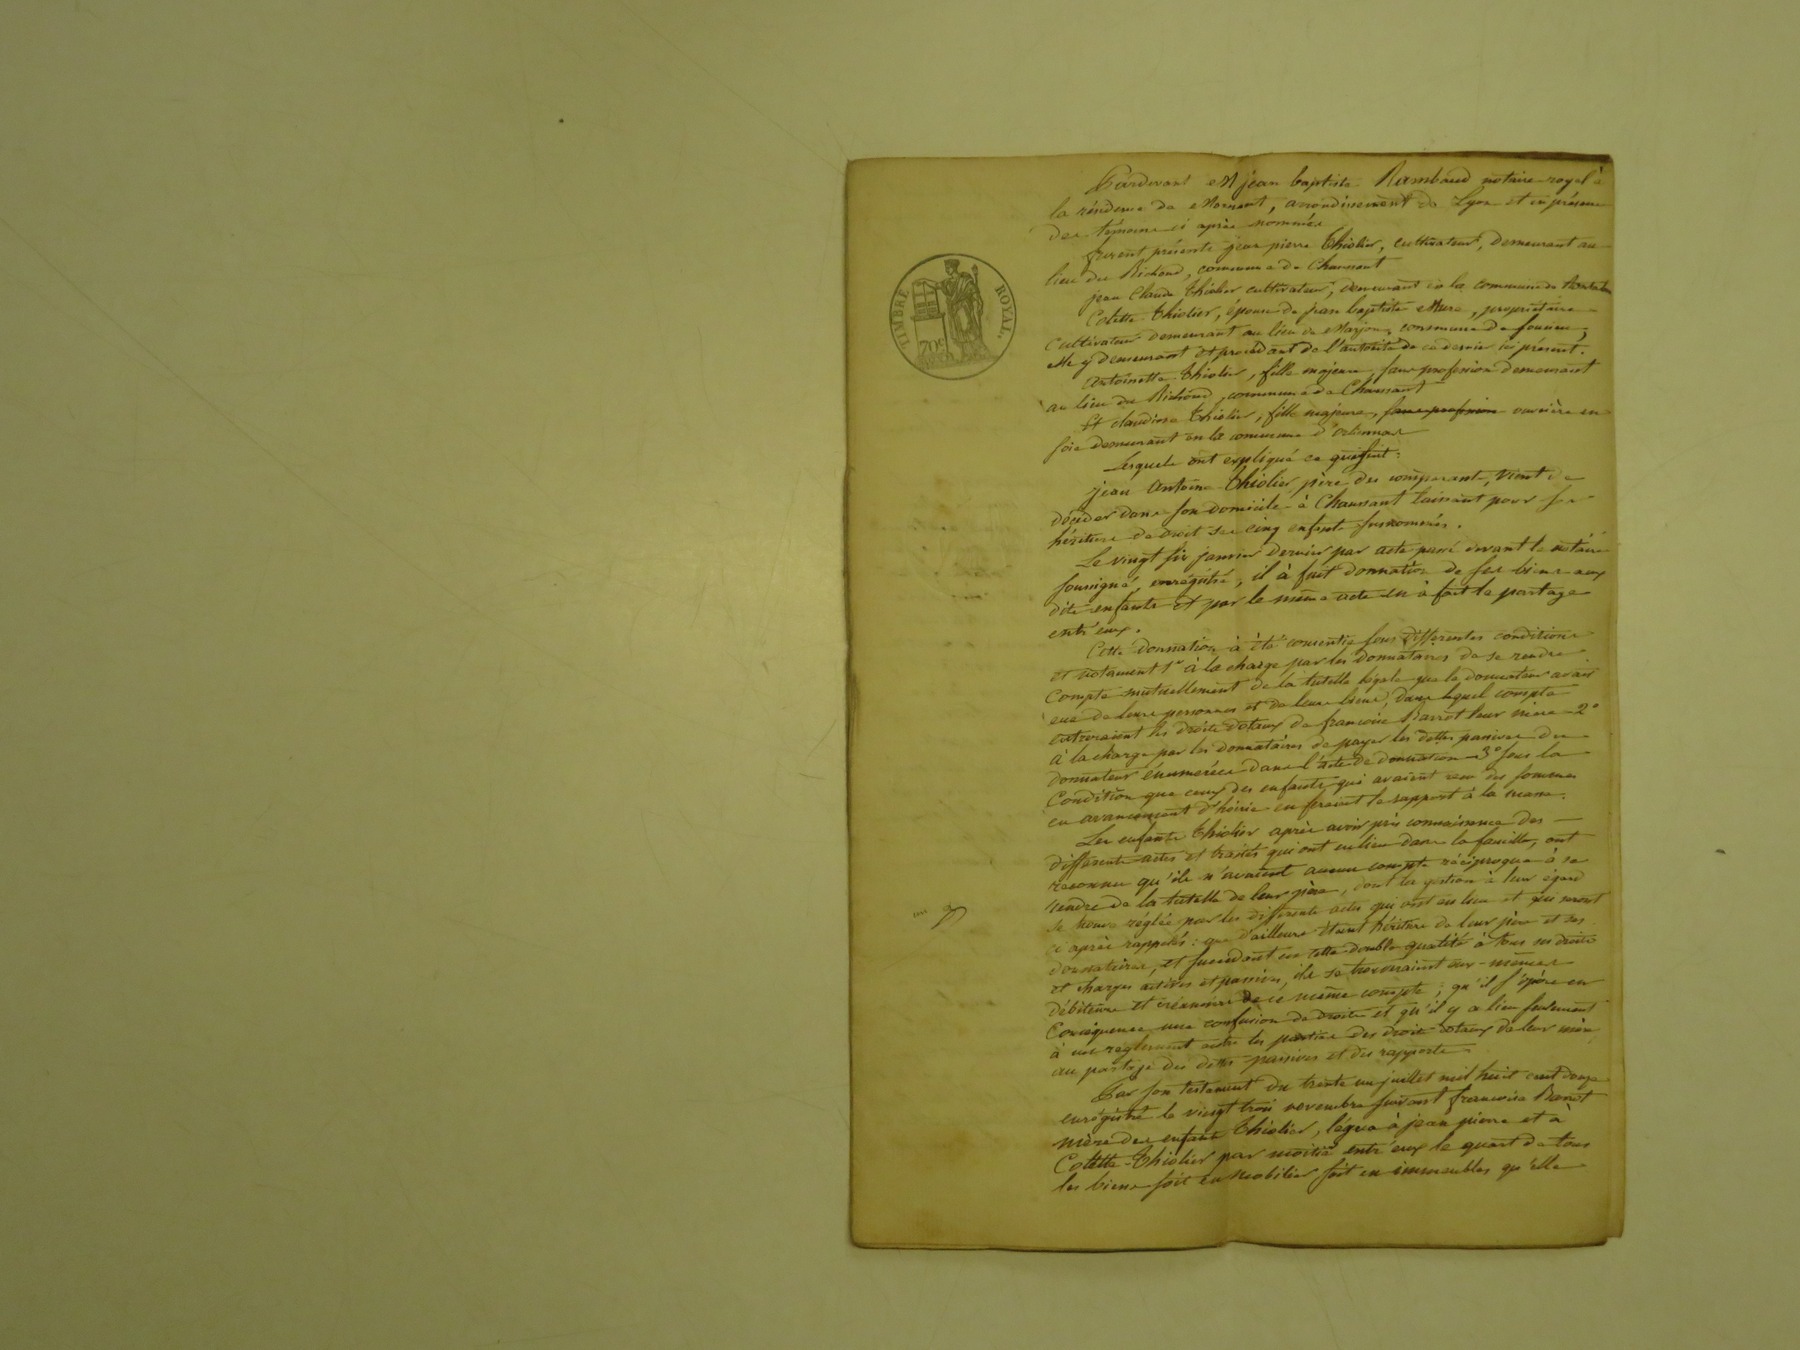 Pardevant Me jean baptiste Rambaud notaire royal à
la résidence de Mornant, arrondissement de Lyon et en présence
des témoins ci après nommés
furent présents jean pierre Thiolier, cultivateur, demeurant au
lieu du Richoud, commune de Chaussant
jean Claude Thiolier cultivateur, demeurant en la commune de
Colette Thiolier, épouse de jean baptiste Mure, propriétaire
cultivateur demeurant au lieu de commune de
elle y demeurant et procédant de l'autorité de ce dernier ici présent.
Antoinette Thiolier, fille majeure, sans profession demeurant
au lieu du Richoud, commune de Chaussant
Et claudine Thiolier, fille majeure, sans profession ouvrière en
soie demeurant en la commune d'orliénas
Lesquels ont expliqué ce qui suit :
jean Antoine Thiolier père des comparants, vient de
décéder dans son domicile à Chaussant laissant pour ses
héritiers de droit ses cinq enfants susnommés.
Le vingt six janvier dernier par acte passé devant le notaire
soussigné, enregistré, il à fait donnation de ses biens aux
dits enfants et par le même acte en à fait le partage
entr'eux.
Cette donnation à été consentie sous différentes conditions
et notament 1° à la charge par les donnataires de se rendre
compte mutuellement de la tutelle légale que le donnateur avait
eue de leurs personnes et de leurs biens, dans lequel compte
entreraient les droits dotaux de francoise Barrot leur mère 2°
à la charge par les donnataires de payer les dettes passives du
donnateur énumérées dans l'acte de donnation 3° sous la
condition que ceux des enfants qui avaient recu des sommes
en avancement d'hoirie en feraient le rapport à la masse.
Les enfants Thiolier après avoir pris connaissance des
différents actes et traités qui ont eu lieu dans la famille, ont
reconnu qu'ils n'avaient aucun compte réciproque à se
rendre de la tutelle de leur père, dont la gestion à leur égard
se trouve réglée par les différents actes qui ont eu lieu et qui seront
ci après rappelés : que d'ailleurs étant héritiers de leur père et ses
donnataires, et succédant en cette double qualité à tous ses droits
et charges actives et passives, ils se trouveraient eux-mêmes
débiteurs et créanciers de ce même compte ; qu'il s'opère en
conséquence une confusion de droits et qu'il y a lieu seulement
à un règlement entre les parties des droits dotaux de leur mère
au partage des dettes passives et des rapports
Par son testament du trente un juillet mil huit cent douze
enrégistré le vingt trois novembre suivant francoise Barrot
mère des enfants Thiolier, légua à jean pierre et à
Colette Thiolier par moitié entr'eux le quart de tous
les biens soit en mobilier soit en immeubles qu'elle
TIMBRE ROYAL.
70c